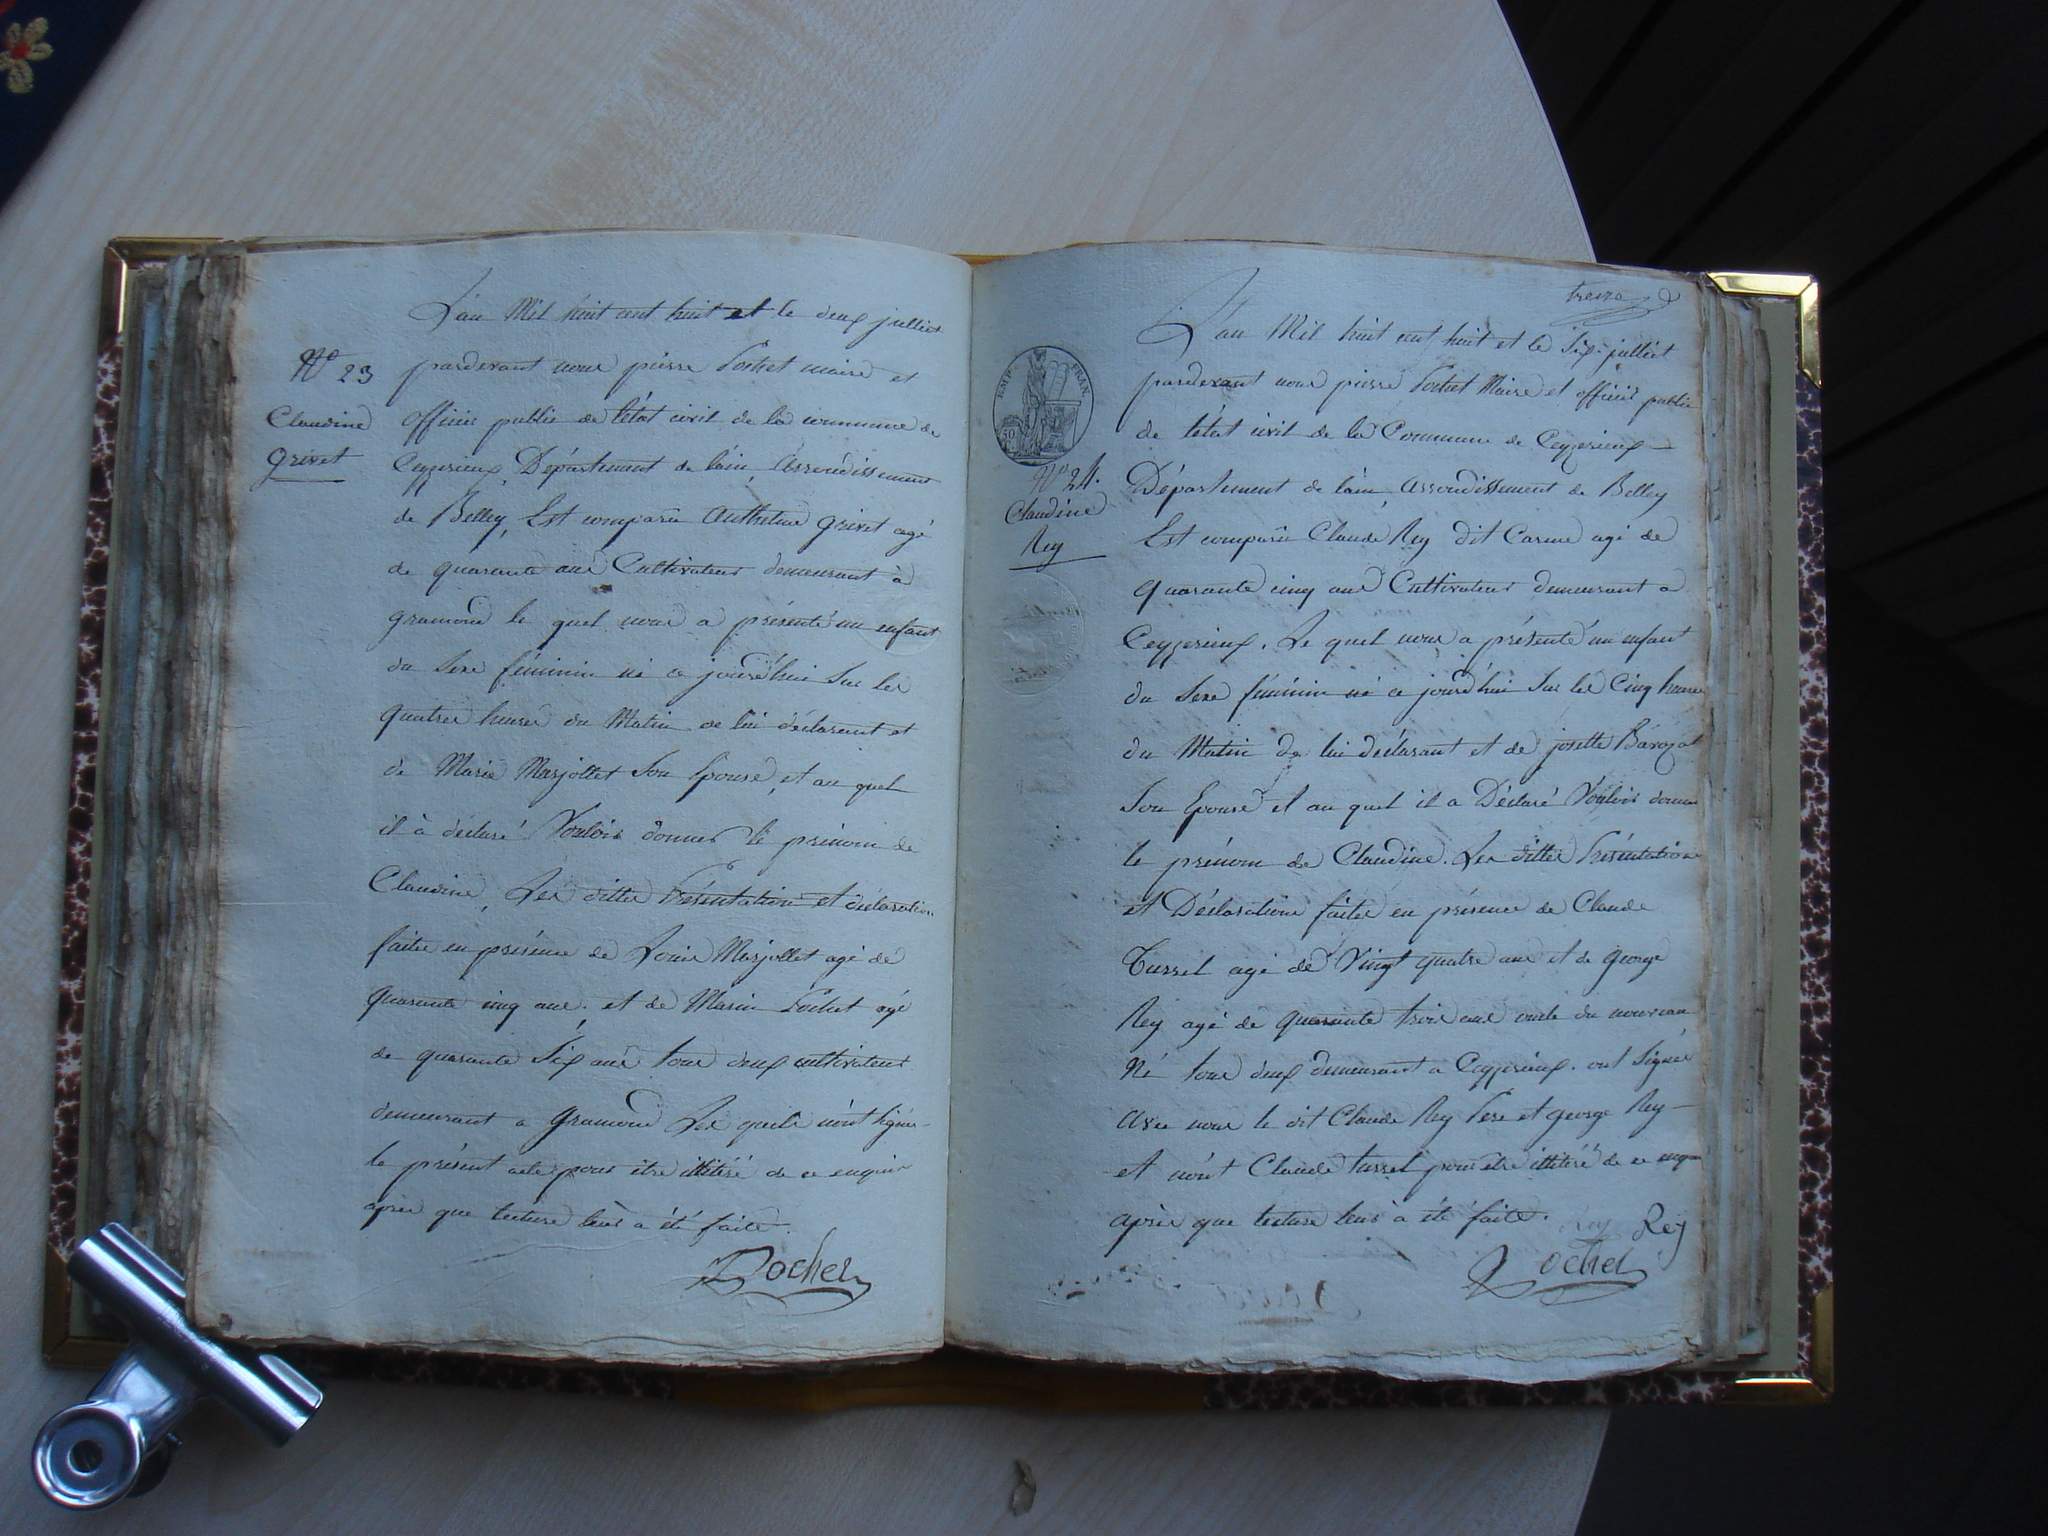 L'an Mil huit cent huit et le deux julliet
N° 23
pardevant nous pierre Pochet maire et
Claudine
Grivet
officier public de l'état civil de la commune de
Ceyzerieux, Département de l'ain, Arrondissement
de Belley, Est comparu Anthelme Grivet agé
de quarante ans Cultivateur demeurant à
gramond le quel nous a présenté un enfant
du Sexe féminin né ce jourd'hui Sur les
quatre heures du Matin de lui déclarant et
de Marie Marjollet Son Epouse, et au quel
il à déclaré Vouloir donner le prénom de
Claudine, Les dittes Présentation et déclaration
faites en présence de Louis Marjollet agé de
quarante cinq ans, et de Marin Pochet agé
de quarante Six ans tous deux cultivateurs
demeurant a gramond Les quels n'ont Signé
le présent acte pour être illitéré de ce enquis
après que lecture leur a été faite.
Pochet
treize
L'an Mil huit cent huit et le Six julliet
pardevant nous pierre Pochet Maire et officier public
de l'état civil de la Commune de Ceyzerieux
EMP. FRAN.
50
N° 24.
Claudine
Rey
Département de l'ain, Arrondissement de Belley
Est comparu Claude Rey dit Carme agé de
quarante cinq ans Cultivateur demeurant a
Ceyzerieux, Le quel nous a présenté un enfant
du Sexe féminin né ce jourd'hui Sur les Cinq heures
du Matin de lui déclarant et de josette
Son Epouse et au quel il a Déclaré Vouloir donner
le prénom de Claudine. Les dittes Présentation
et Déclaration faites en présence de Claude
Turrel agé de Vingt quatre ans et de george
Rey agé de quarante trois ans oncle du nouveau
Né tous deux demeurant a Ceyzerieux. ont Signés
avec nous le dit Claude Rey Pere et george Rey
et n'ont Claude turrel pour être illitéré de ce enquis
après que lecture leur à été faite.
Rey Rey
Pochet